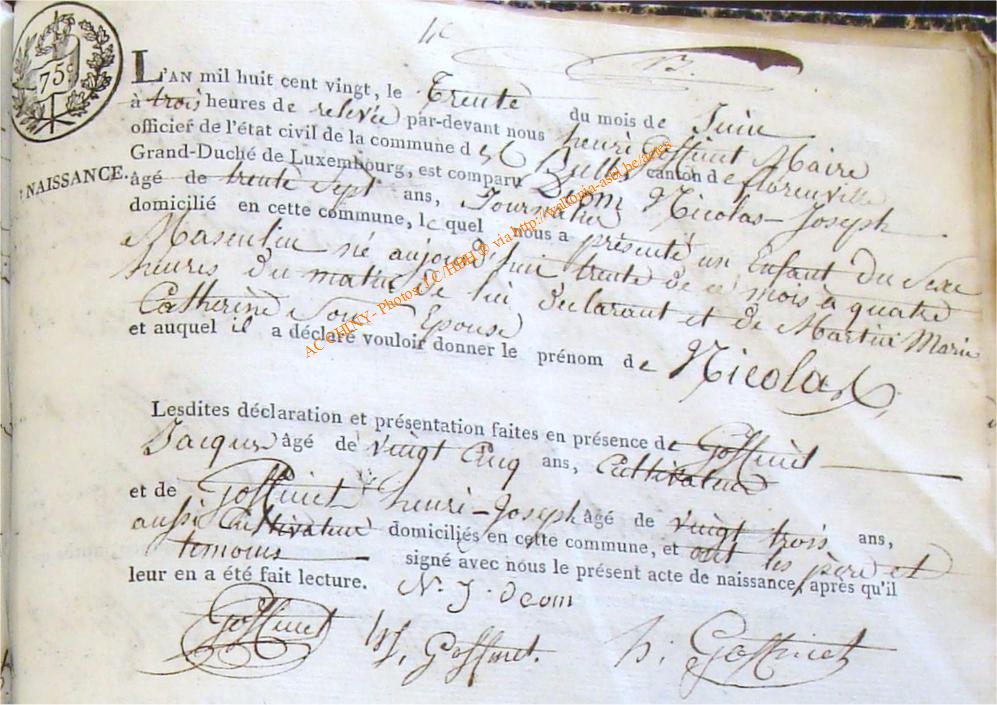 75
NAISSANCE.
L'AN mil huit cent vingt, le Trente du mois de Juin
à trois heures de relevée par-devant nous henri Goffinet Maire
officier de l'état civil de la commune de Bulles, canton de florenville
Grand-Duché de Luxembourg, est comparu Deom Nicolas-Joseph
âgé de trente Sept ans, Journalier
domicilié en cette commune, lequel nous a présenté un Enfant du Sexe
Masculin né aujourd'hui trente de ce mois à quatre
heures du matin de lui déclarant et de Martin Marie
Catherine Son Epouse
et auquel il a déclaré vouloir donner le prénom de Nicolas
Lesdites déclaration et présentation faites en présence de Goffinet
Jacques âgé de vingt Cinq ans, Cultivateur
et de Goffinet henri-Joseph âgé de vingt trois ans,
aussi Cultivateur domiciliés en cette commune, et ont les père et
temoins signé avec nous le présent acte de naissance, après qu'il
leur en a été fait lecture. N. J. Deom
Goffinet H. J. Goffinet. h. Goffinet
AC CHINY - Photos LC/HBH ® via http://wallonia-asbl.be/actes